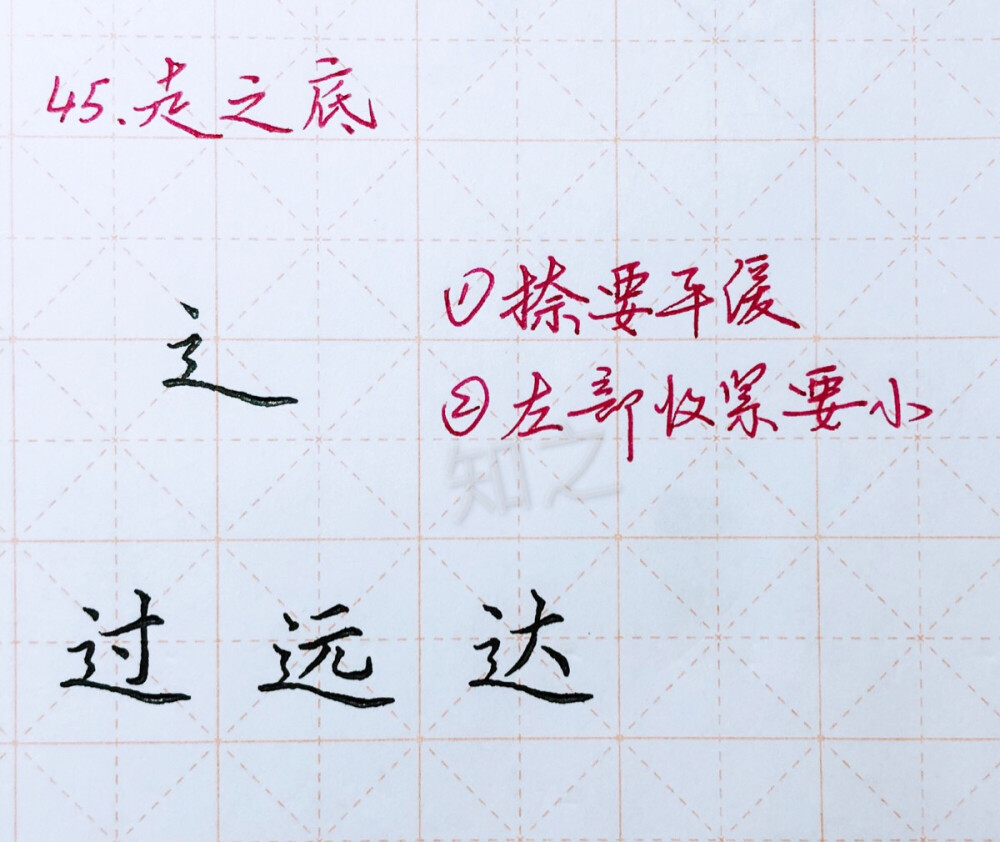 45.走之底
①捺要平缓
辶
②左部收紧要小
知之
过 远 达